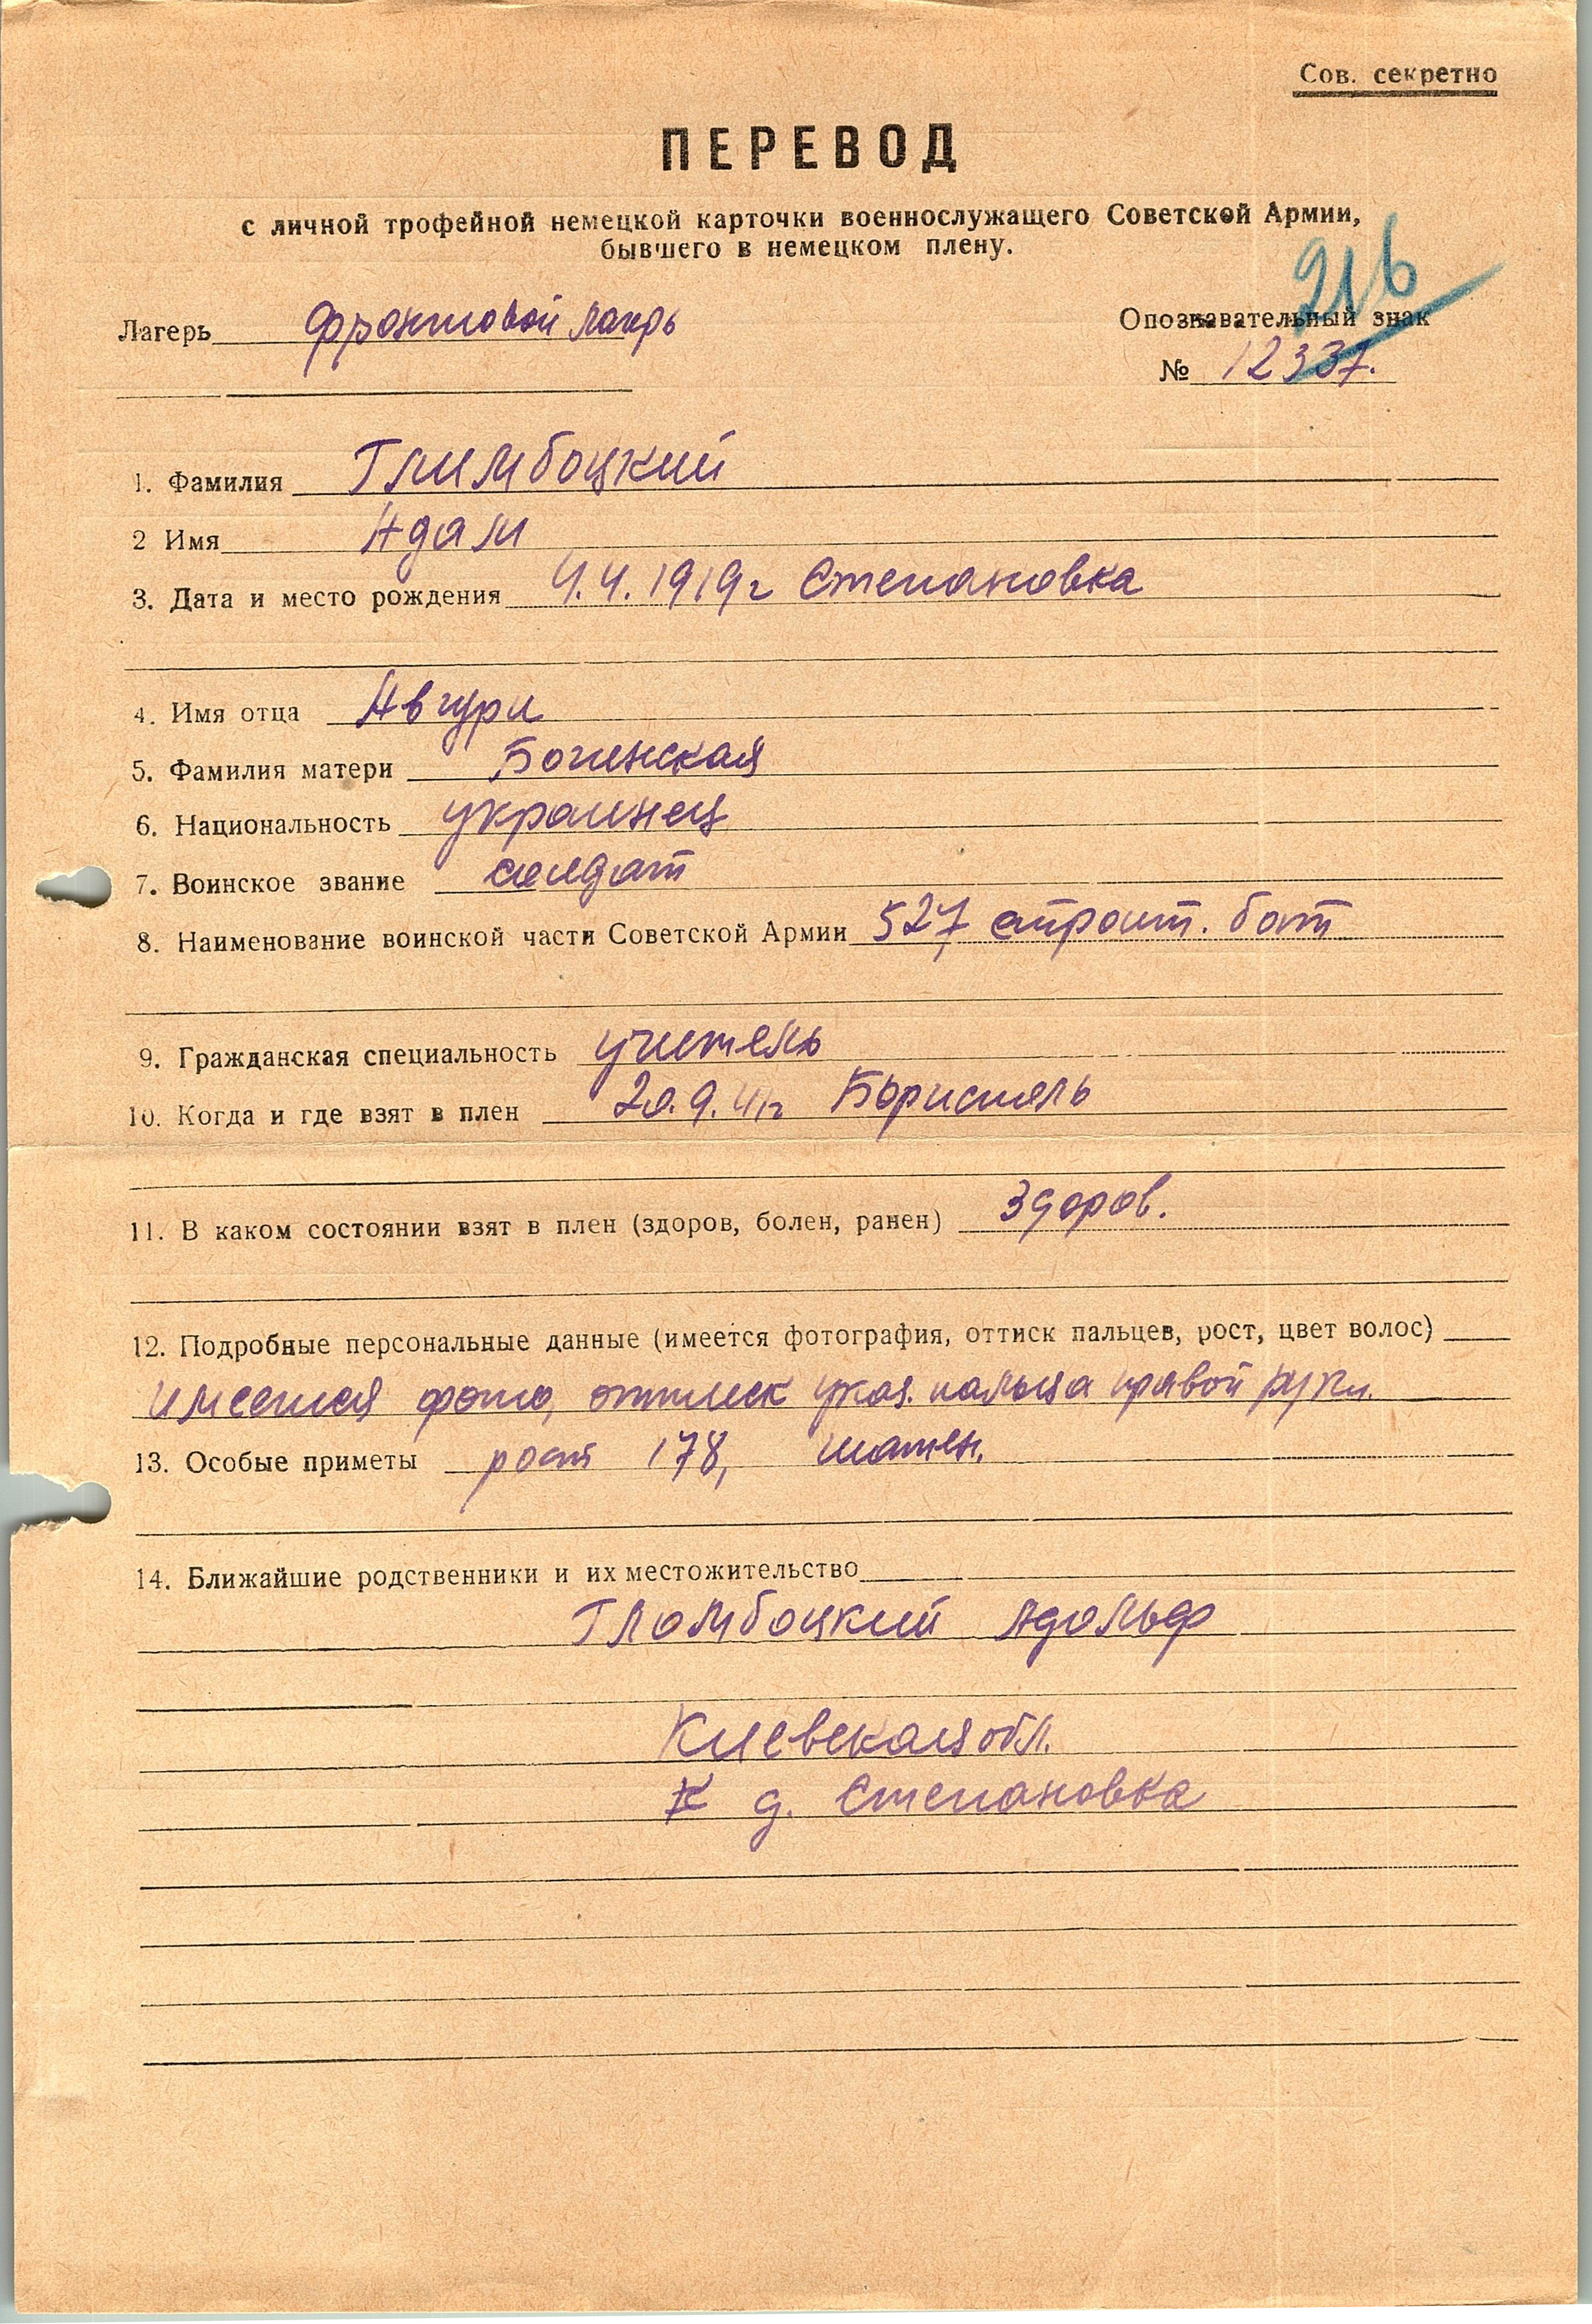 Сов. секретно
ПЕРЕВОД
с личной трофейной немецкой карточки военнослужащего Советской Армии,
бывшего в немецком плену.
216
Лагерь фронтовой лагрь
Опознавательный знак
№ 12337.
1. Фамилия Глимбоцкий
2 Имя Адам
3. Дата и место рождения 4.4.1919г Степановка
4. Имя отца
5. Фамилия матери
6. Национальность украинец
7. Воинское звание солдат
8. Наименование воинской части Советской Армии 527 строит. бат
9. Гражданская специальность учитель
10. Когда и где взят в плен 20.9.41г Бориспель
11. В каком состоянии взят в плен (здоров, болен, ранен) здоров.
12. Подробные персональные данные (имеется фотография, оттиск пальцев, рост, цвет волос)
имеется фото, оттиск указ. пальца правой руки.
13. Особые приметы рост 178, шатен.
14. Ближайшие родственники и их местожительство
Гломбоцкий Адольф
Киевская обл.
д. Степановка